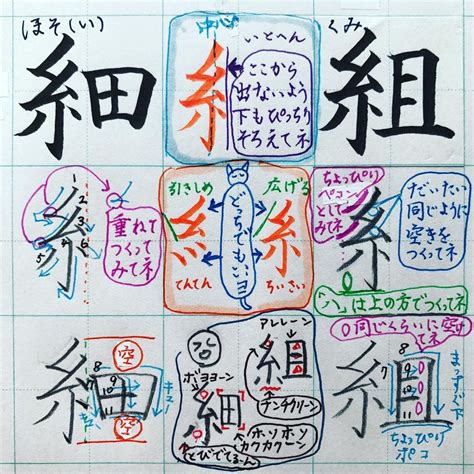 ほそ(い)
細
中心
いとへん
糸
ここから
出ないよう
下もぴっちり
そろえてネ
くみ
組
1
2
3
4
5
6
糸
重ねて
つくって
みてネ
引きしめ
広げる
どっちでもいいヨ
てんてん
ちいさい
ちょっぴり
ペコン
として
みてネ
糸
だいたい
同じように
空きを
つくってネ
「八」は上の方でつくってネ
〇同じくらいに空けてネ
細
7
8
9
10
11
空
空
キュー
キュー
ボヨヨーン
細
とびでてるーん
アレレーン
組
チンチクリーン
ホソホソ
カクカクーン
組
7
8
9
10
11
まっすぐ下
ちょっぴり
ポコ